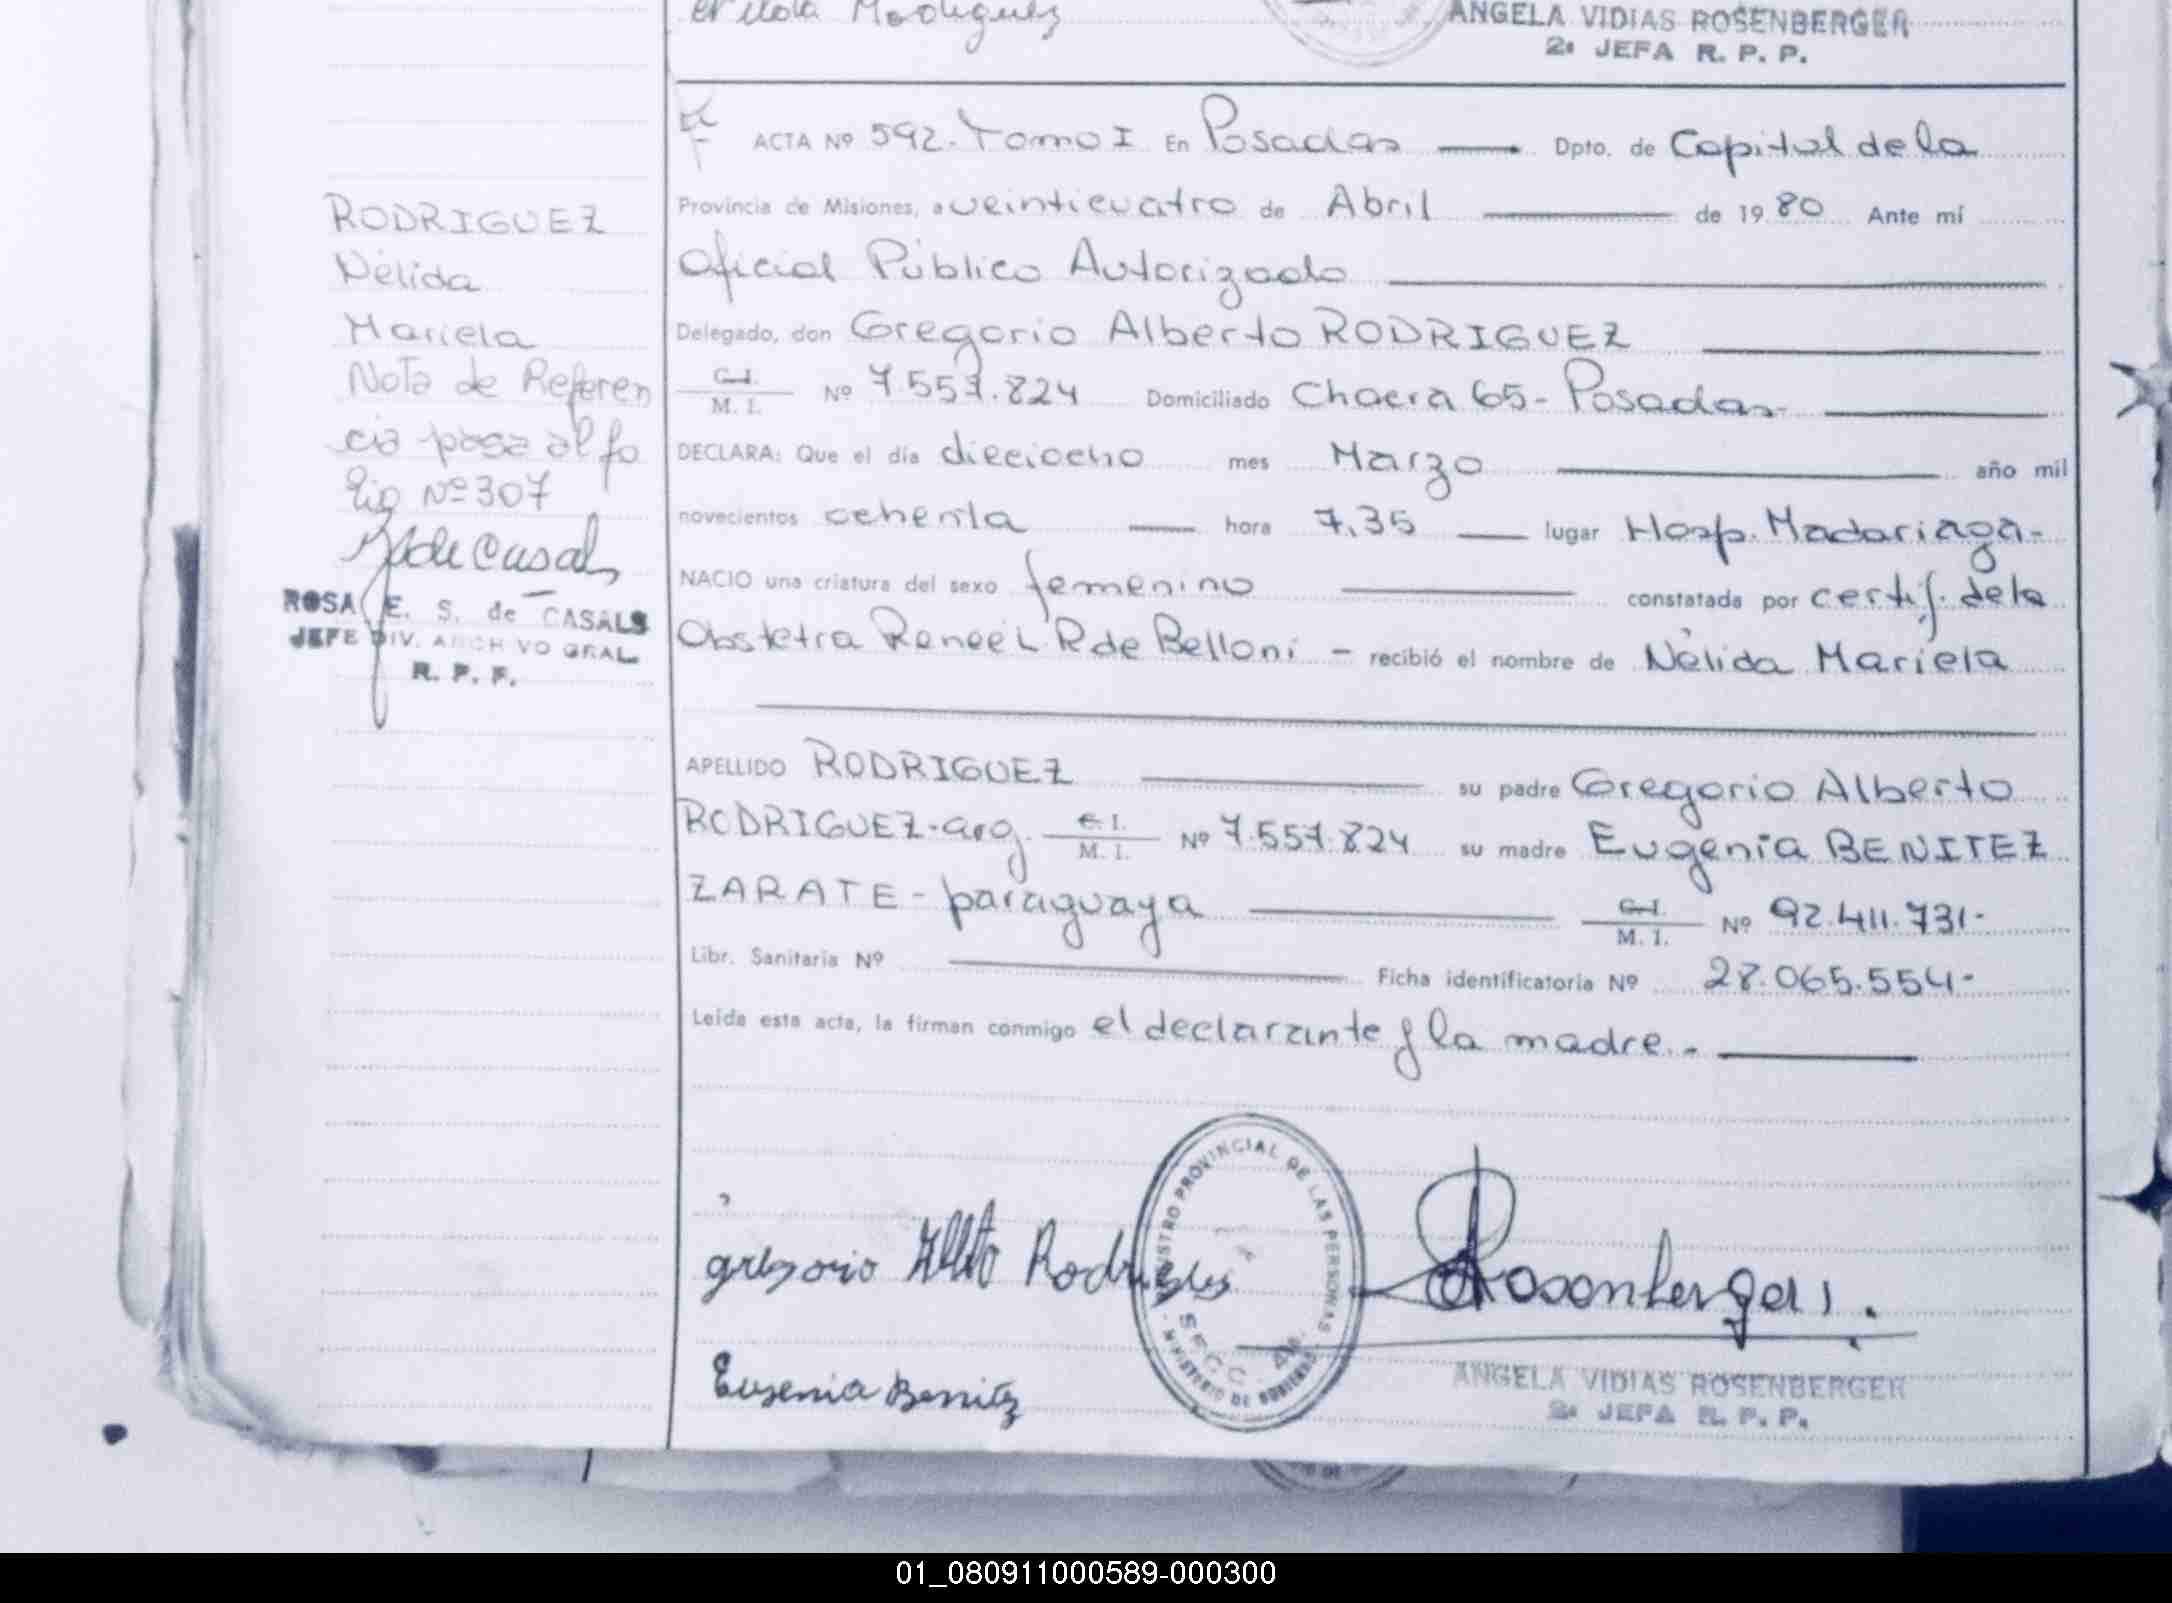 Rodriguez
ANGELA VIDIAS ROSENBERGER
2a JEFA R. P. P.
ACTA Nº 592. Tomo I En Posadas Dpto. de Capital de la
Provincia de Misiones, a veinticuatro de Abril de 1980 Ante mí
Oficial Público Autorizado
Delegado, don Gregorio Alberto RODRIGUEZ
C.I. M. I. Nº 7.557.824 Domiciliado Chacra 65- Posadas-
DECLARA: Que el día dieciocho mes Marzo año mil
novecientos ochenta hora 7,35 lugar Hosp. Madariaga-
NACIO una criatura del sexo femenino constatada por certif. de la
Obstetra Reneé L. R de Belloni - recibió el nombre de Nélida Mariela
APELLIDO RODRIGUEZ su padre Gregorio Alberto
RODRIGUEZ-arg. C.I. M. I. Nº 7.557.824 su madre Eugenia BENITEZ
ZARATE - paraguaya C.I. M. I. Nº 92.411.731-
Libr. Sanitaria Nº Ficha identificatoria Nº 28.065.554-
Leída esta acta, la firman conmigo el declarante y la madre.-
RODRIGUEZ
Nélida
Mariela
Nota de Referen
cia pasa al fo
lio Nº 307
de Casals
ROSA E. S. de CASALS
JEFE DIV. ARCHIVO GRAL.
R. P. P.
gregorio Alberto Rodrigues
REGISTRO PROVINCIAL DE LAS PERSONAS
MINISTERIO DE GOBIERNO
SECC.
Rosenberger
Eugenia Benitez
ANGELA VIDIAS ROSENBERGER
2a JEFA R. P. P.
01_080911000589-000300